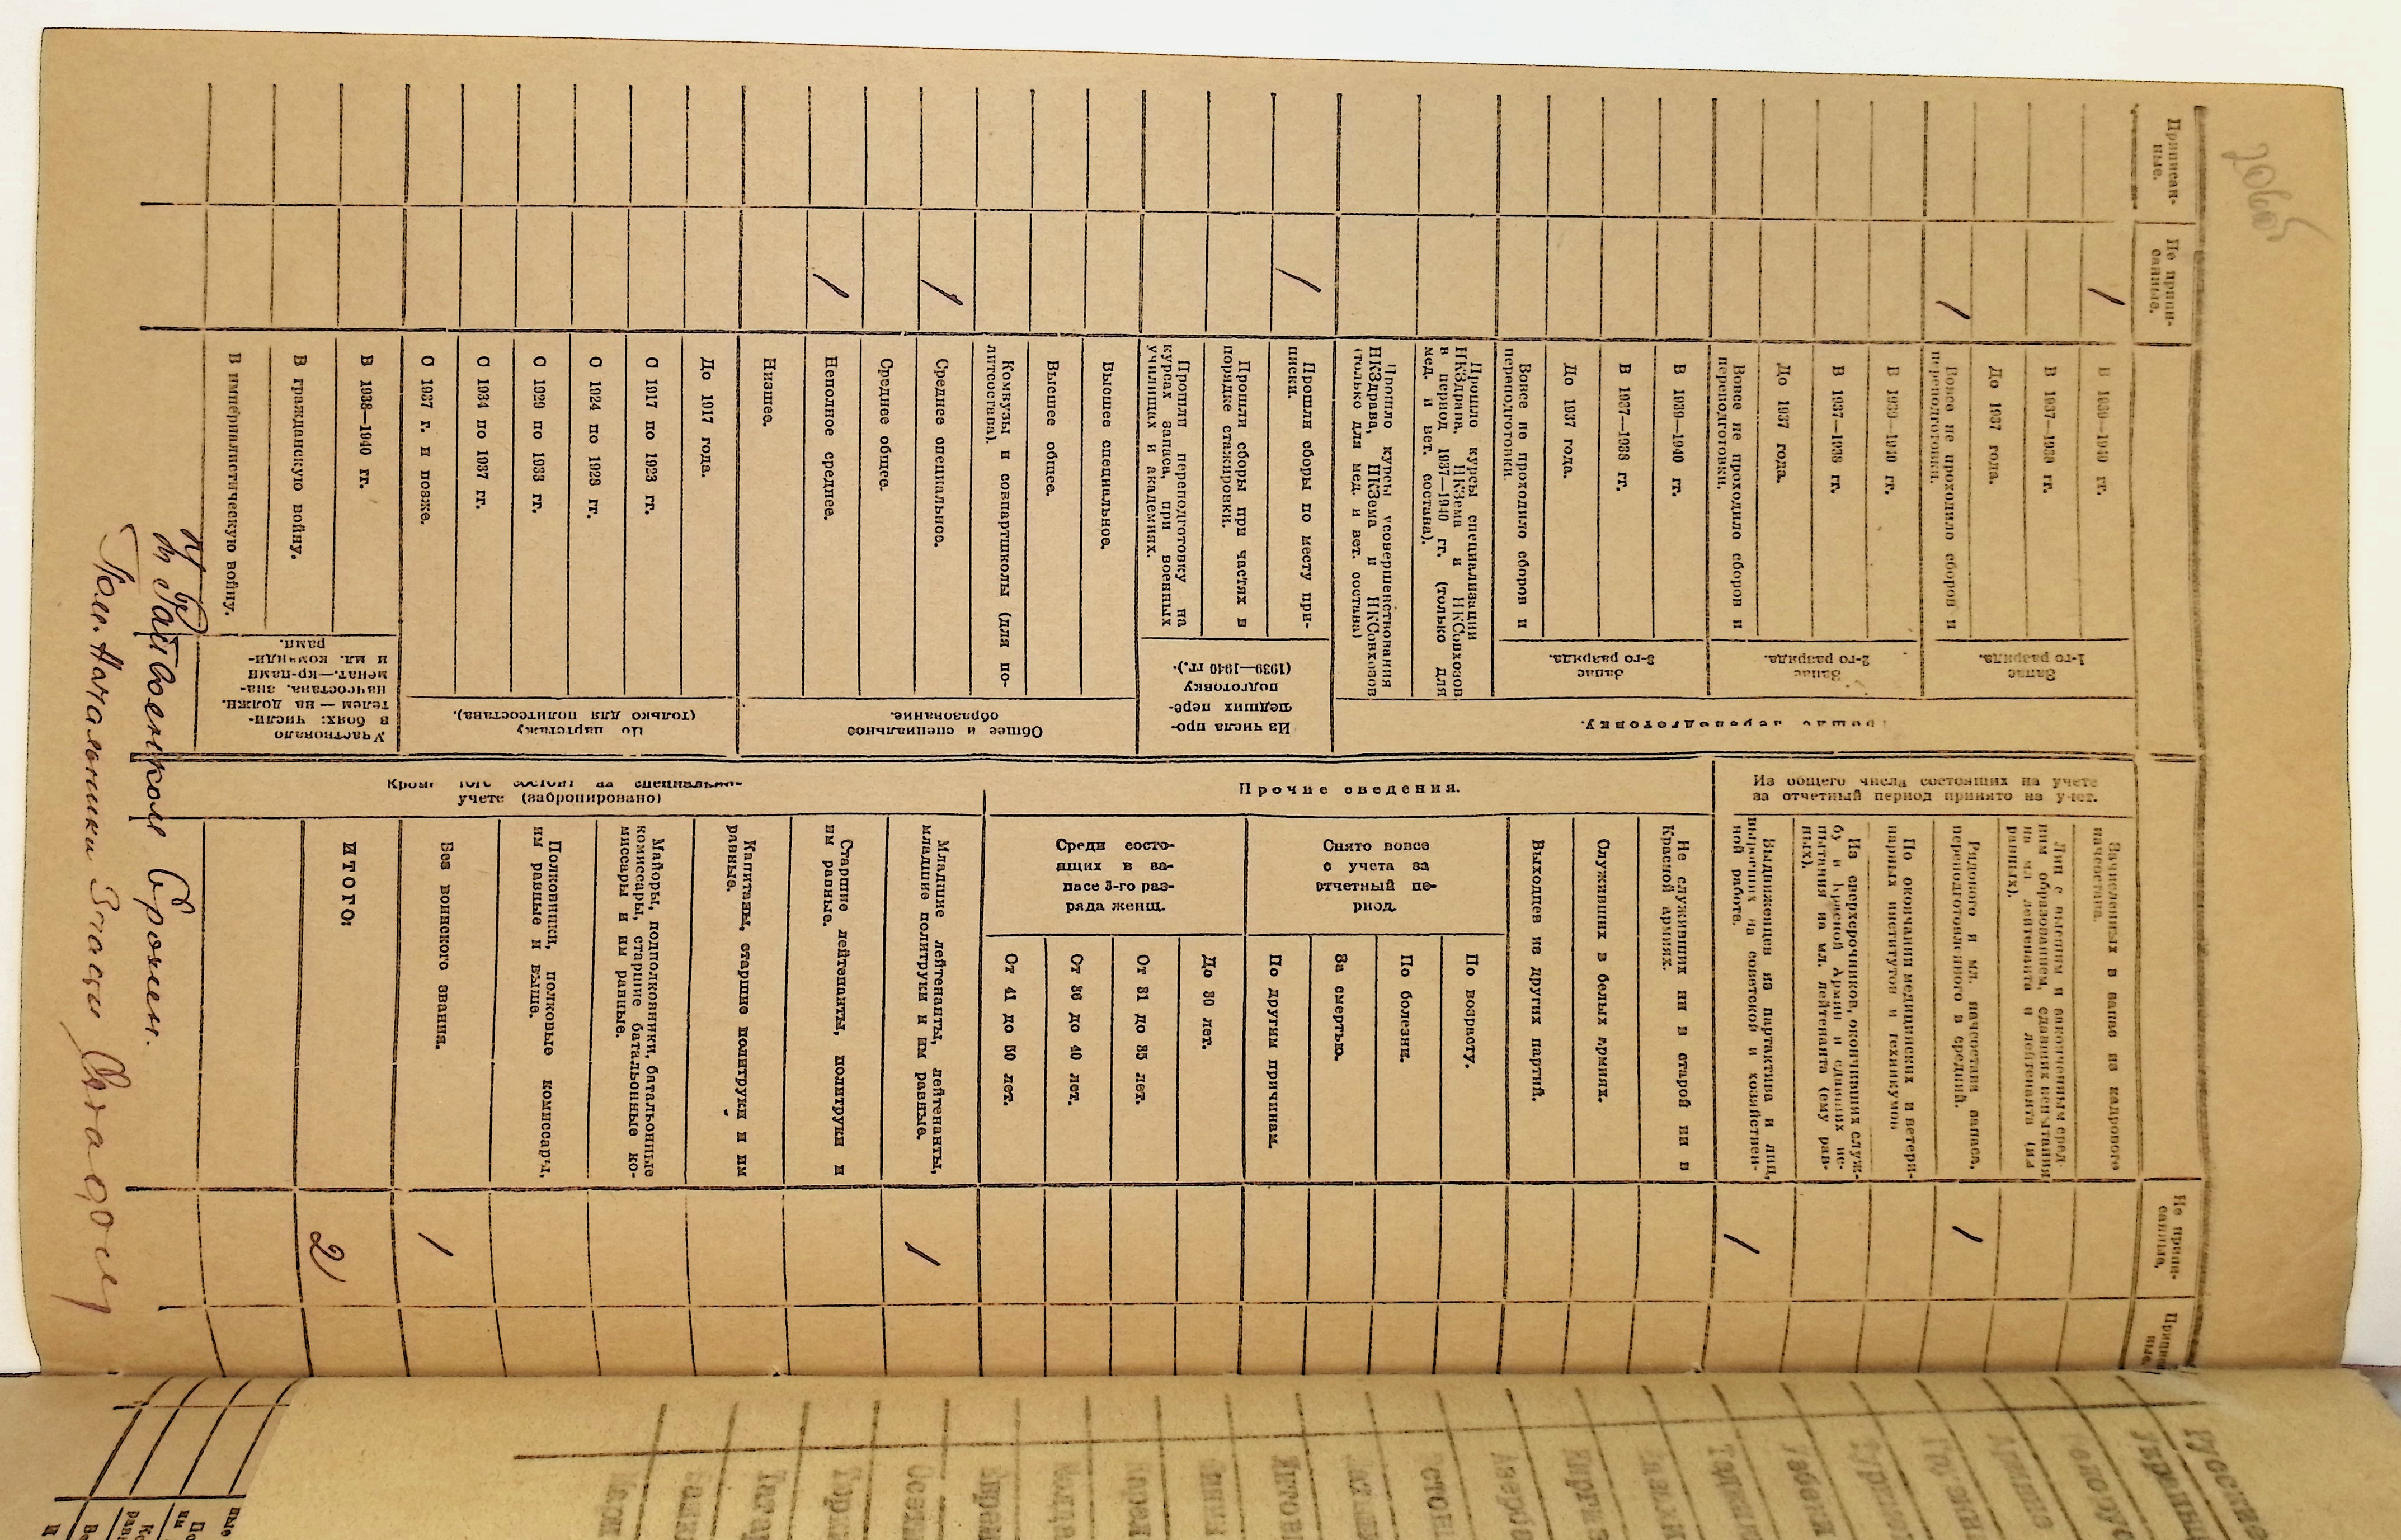 Приписан-
ные.
Не припи-
санные.
1
1
1
1
1
Прошло переподготовку.
Запас
1-го разряда.
В 1939—1940 гг.
В 1937—1938 гг.
До 1937 года.
Вовсе не проходило сборов и
переподготовки.
Запас
2-го разряда.
В 1939—1940 гг.
В 1937—1938 гг.
До 1937 года.
Вовсе не проходило сборов и
переподготовки.
Запас
3-го разряда.
В 1939—1940 гг.
В 1937—1938 гг.
До 1937 года.
Вовсе не проходило сборов и
переподготовки.
Прошло курсы специализации
НКЗдрава, НКЗема и НКСовхозов
в период 1937—1940 гг. (только для
мед. и вет. состава).
Прошло курсы усовершенствования
НКЗдрава, НКЗема и НКСовхозов
(только для мед. и вет. состава)
Из числа про-
шедших пере-
подготовку
(1939—1940 гг.).
Прошли сборы по месту при-
писки.
Прошли сборы при частях в
порядке стажировки.
Прошли переподготовку на
курсах запаса, при военных
училищах и академиях.
Общее и специальное
образование.
Высшее специальное.
Высшее общее.
Комвузы и совпартшколы (для по-
литсостава).
Среднее специальное.
Среднее общее.
Неполное среднее.
Низшее.
По партстажу
(только для политсостава).
До 1917 года.
С 1917 по 1923 гг.
С 1924 по 1928 гг.
С 1929 по 1933 гг.
С 1934 по 1937 гг.
С 1937 г. и позже.
Участвовало
в боях: числи-
телем — на должн.
начсостава, зна-
менат.—кр-цами
и мл. команди-
рами.
В 1938—1940 гг.
В гражданскую войну.
В империалистическую войну.
Из общего числа состоящих на учете
за отчетный период принято на учет.
Зачисленных в запас из кадрового
начсостава.
Лиц с высшим и законченным сред-
ним образованием, сдавших испытания
на мл. лейтенанта и лейтенанта (им
равных).
Рядового и мл. начсостава запаса,
переподготовленного в средний.
По окончании медицинских и ветери-
нарных институтов и техникумов
Из сверхсрочников, окончивших служ-
бу в Красной Армии и сдавших ис-
пытания на мл. лейтенанта (ему рав-
ных).
Выдвиженцев из партактива и лиц,
выросших на советской и хозяйствен-
ной работе.
Прочие сведения.
Не служивших ни в старой ни в
Красной армиях.
Служивших в белых армиях.
Выходцев из других партий.
Снято вовсе
с учета за
отчетный пе-
риод.
По возрасту.
По болезни.
За смертью.
По другим причинам.
Среди состо-
ящих в за-
пасе 3-го раз-
ряда женщ.
До 30 лет.
От 31 до 35 лет.
От 36 до 40 лет.
От 41 до 50 лет.
Кроме того состоит на специальном
учете (забронировано)
Младшие лейтенанты, лейтенанты,
младшие политруки и им равные.
Старшие лейтенанты, политруки и
им равные.
Капитаны, старшие политруки и им
равные.
Майоры, подполковники, батальонные
комиссары, старшие батальонные ко-
миссары и им равные.
Полковники, полковые комиссары,
им равные и выше.
Без воинского звания.
ИТОГО:
Не припи-
санные.
Приписан-
ные.
1
1
1
1
2
Райвоенком
Пом. Начальника